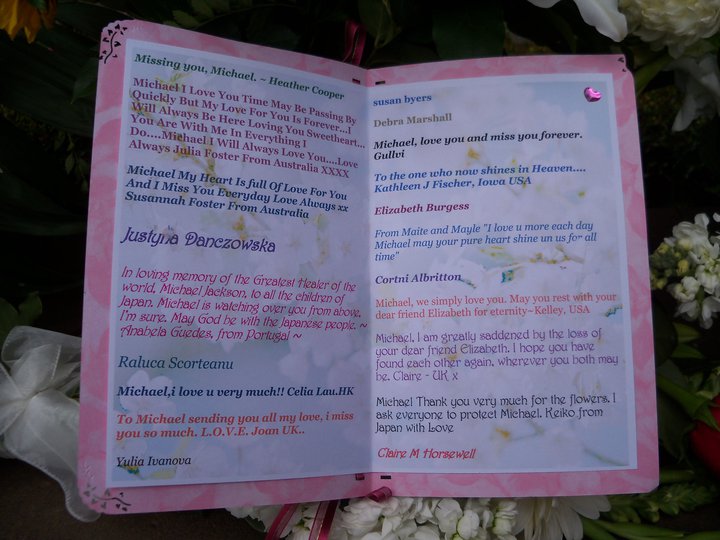 Missing you, Michael. ~ Heather Cooper
Michael I Love You Time May Be Passing By
Quickly But My Love For You Is Forever...I
Will Always Be Here Loving You Sweetheart...
You Are With Me In Everything I
Do....Michael I Will Always Love You....Love
Always Julia Foster From Australia XXXX
Michael My Heart Is full Of Love For You
And I Miss You Everyday Love Always xx
Susannah Foster From Australia
Justyna Danczowska
In loving memory of the Greatest Healer of the
world, Michael Jackson, to all the children of
Japan. Michael is watching over you from above,
I'm sure. May God be with the Japanese people. ~
Anabela Guedes, from Portugal ~
Raluca Scorteanu
Michael,i love u very much!! Celia Lau.HK
To Michael sending you all my love, i miss
you so much. L.O.V.E. Joan UK..
Yulia Ivanova
susan byers
Debra Marshall
Michael, love you and miss you forever.
Gullvi
To the one who now shines in Heaven....
Kathleen J Fischer, Iowa USA
Elizabeth Burgess
From Maite and Mayle "I love u more each day
Michael may your pure heart shine un us for all
time"
Cortni Albritton
Michael, we simply love you. May you rest with your
dear friend Elizabeth for eternity~Kelley, USA
Michael, I am greatly saddened by the loss of
your dear friend Elizabeth. I hope you have
found each other again, wherever you both may
be. Claire - UK x
Michael Thank you very much for the flowers. I
ask everyone to protect Michael. Keiko from
Japan with Love
Claire M Horsewell